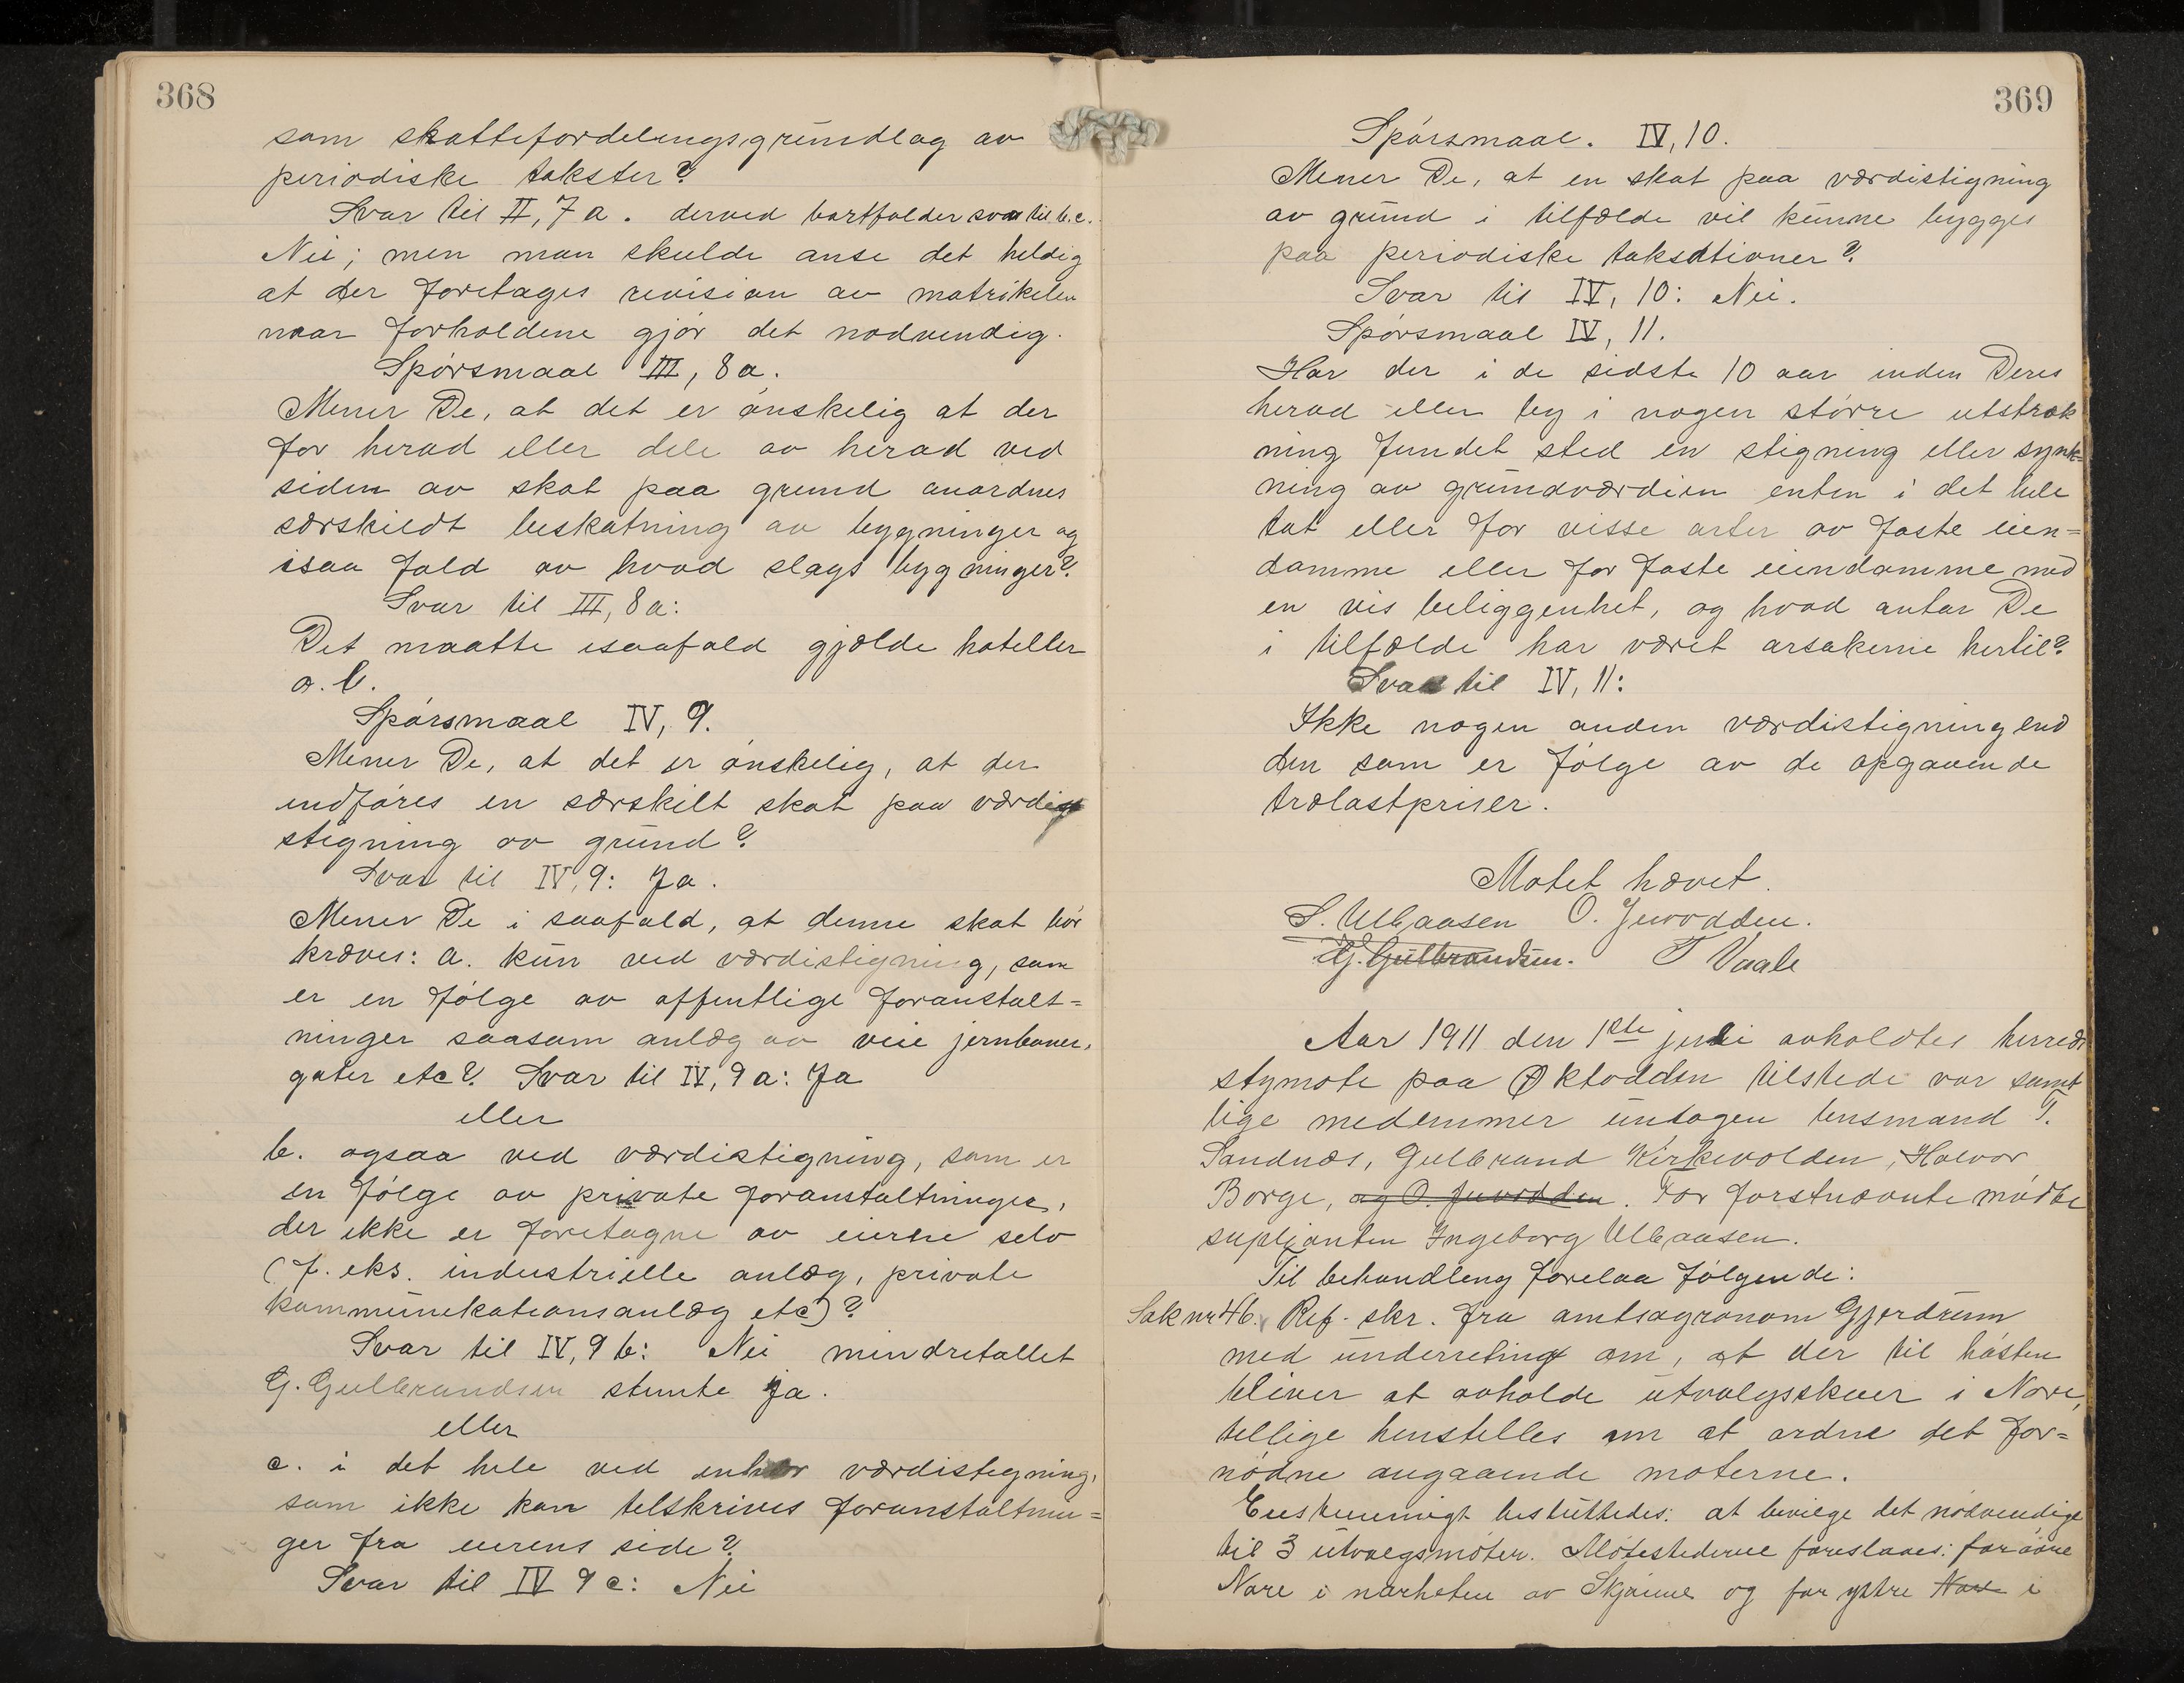 368
som skattefordelingsgrundlag av
periodiske takster?
Svar til II, 7 a. derved bortfalder svar til b.c.
Nei; men man skulde anse det heldig
at der foretages revision av matrikelen
naar forholdene gjør det nødvendig.
Spørsmaal III, 8 a.
Mener De, at det er ønskelig at der
for herad eller dele av herad ved
siden av skat paa grund anordnes
særskildt beskatning av bygninger og
isaa fald av hvad slags bygninger?
Svar til III, 8 a:
Det maatte isaafald gjælde hoteller
o. l.
Spørsmaal IV, 9.
Mener De, at det er ønskelig, at der
indføres en særskilt skat paa værdi
stigning av grund?
Svar til IV, 9: Ja.
Mener De i saafald, at denne skat bør
kræves: a. kun ved værdistigning, som
er en følge av offentlige foranstalt=
ninger saasom anlæg av veie jernbaner,
gater etc? Svar til IV, 9 a: Ja
eller
b. ogsaa ved værdistigning, som er
en følge av private foranstaltninger,
der ikke er foretagne av eierne selv
(f. eks. industrielle anlæg, private
kommunikationsanlæg etc)?
Svar til IV, 9 b: Nei mindretallet
G. Gulbrandsen stemte ja.
eller
c. i det hele ved enhver værdistigning,
som ikke kan tilskrives foranstaltnin=
ger fra eierens side?
Svar til IV 9 c: Nei
369
Spørsmaal. IV, 10.
Mener De, at en skat paa værdistigning
av grund i tilfælde vil kunne bygges
paa periodiske taksationer?
Svar til IV, 10: Nei.
Spørsmaal IV, 11.
Har der i de sidste 10 aar inden Deres
herad eller by i nogen større utstræk
ning fundet sted en stigning eller synk=
ning av grundværdien enten i det hele
tat eller for visse arter av faste eien=
domme eller for faste eiendomme med
en vis beliggenhet, og hvad antar De
i tilfælde har været arsakerne hertil?
Svar til IV, 11:
Ikke nogen anden værdistigning end
den som er følge av de opgaaende
trælastpriser.
Møtet hævet.
S. Ulbaasen O. Juvodden.
G. Gulbrandsen. T Vaale
Aar 1911 den 1ste juli avholdtes herreds
stymøte paa Øktodden tilstede var samt
lige medlemmer undtagen lensmand T.
Sandnæs, Gulbrand Kirkevolden, Halvor
Borge, og O. Juvodden. For førstnævnte mødte
suplianten Ingeborg Ulbaasen.
Til behandling forelaa følgende:
Sak nr 46. Ref. skr. fra amtsagronom Gjerdrum
med underreting om, at der til høsten
bliver at avholde utvalgsskuer i Nore,
tillige henstilles om at ordne det for=
nødne angaaende møterne.
Enstemmigt besluttedes: at bevilge det nødvendige
til 3 utvalgsmøter. Møtestederne foreslaaes: for øvre
Nore i nærheten av Skjønne og for ytre Nore i